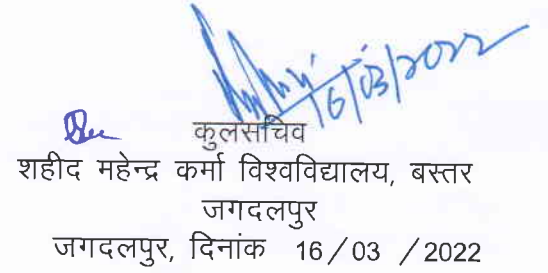 16/03/2022
कुलसचिव
शहीद महेन्द्र कर्मा विश्वविद्यालय, बस्तर
जगदलपुर
जगदलपुर, दिनांक 16/03 /2022